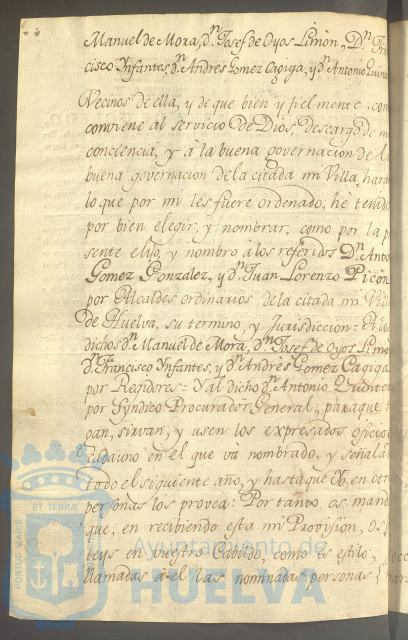 Manuel de Mora, dn. Josef de Oyos Limon, Dn. Fran
cisco Ynfantes, dn. Andres Gomez Cagiga, y dn. Antonio Quinte
Vecinos de ella, y de que bien y fielmente, com
conviene al servicio de Dios, descargo de mi
conciencia, y à la buena governacion de la
buena governacion de la citada mi Villa, haran
lo que por mi les fuere ordenado, hè tenido
por bien elegir, y nombrar, como por la p
sente elijo, y nombro à los referidos Dn. Anto
Gomez Gonzalez, y dn. Juan Lorenzo Picon
por Alcaldes ordinarios de la citada mi Vill
de Huelva, su termino, y Jurisdiccion = A los
dichos dn. Manuel de Mora, dn. Josef de Oyos Limo
dn. Francisco Ynfantes, y dn. Andrès Gomez Cagiga
por Regidores = Y al dicho dn. Antonio Quinte
por Syndico Procurador General; para que t
gan, sirvan, y usen los expresados oficios
cada uno en el que va nombrado, y señala
todo el siguiente año, y hasta que Yo, en otr
personas los provea: Por tanto os mand
que, en recibiendo esta mi Provision, os
teys en vuestro Cabildo, como es estilo,
llamadas à el las nominadas personas
PORTUS MARIS ET TERRÆ
Ayuntamiento de
HUELVA